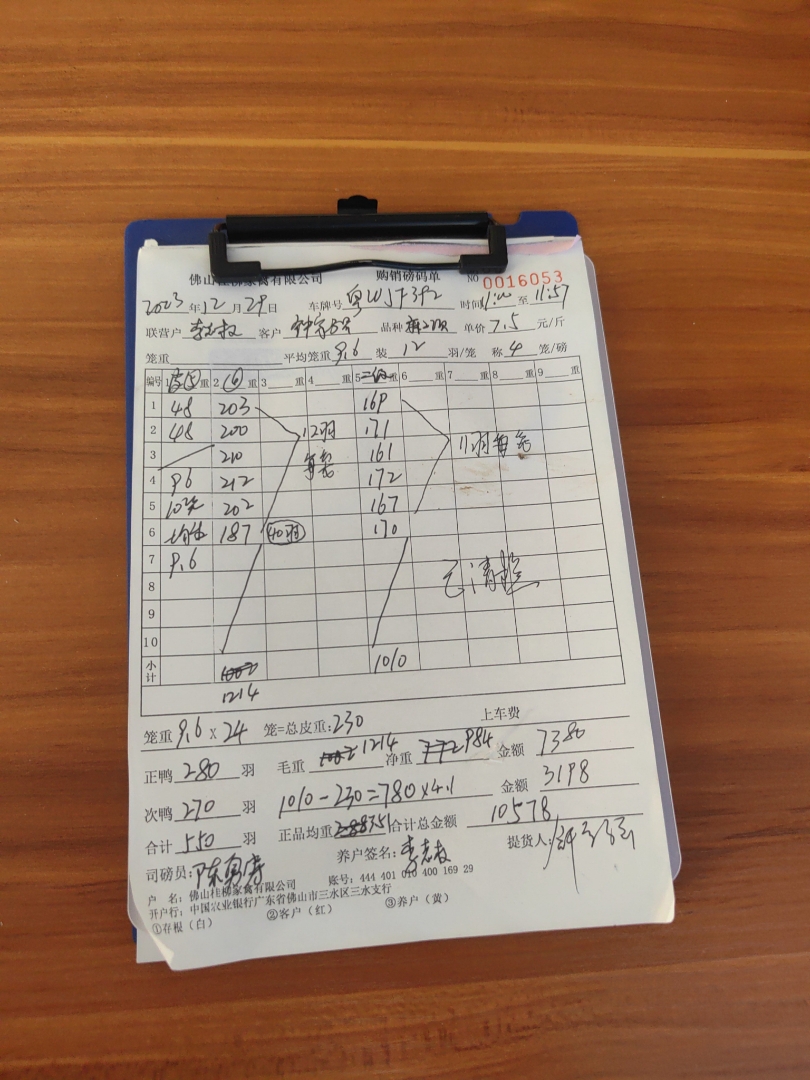 佛山桂柳家禽有限公司 购销磅码单 NO 0016053
2023年12月29日 车牌号 粤WJF392 时间11:00至11:57
联营户 客户 品种 单价7.5元/斤
笼重 平均笼重9.6 装12羽/笼 称4笼/磅
编号 1 重 2 重 3 重 4 重 5 重 6 重 7 重 8 重 9 重
1 48 203 169
2 48 200 12羽 171 11羽每笼
3 210 每笼 161
4 96 212 172
5 10笼 202 167
6 均重 187 40羽 170
7 9.6
8 已清
9
10
小计 1010
1214
笼重9.6×24笼=总皮重:230 上车费
正鸭280羽 毛重1214净重984 金额7380
次鸭270羽 1010-230=780×4.1 金额3198
合计550羽 正品均重3.51合计总金额10578
司磅员: 养户签名:李志枝 提货人:
户 名:佛山桂柳家禽有限公司 账号:444 401 010 400 169 29
开户行:中国农业银行广东省佛山市三水区三水支行
①存根(白) ②客户(红) ③养户(黄)